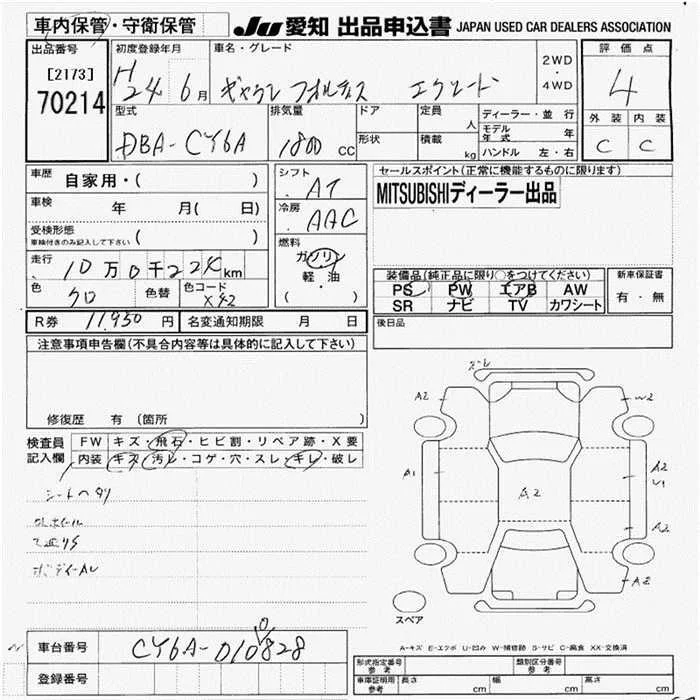 車内保管・守衛保管
JU 愛知 出品申込書 JAPAN USED CAR DEALERS ASSOCIATION
出品番号
[2173]
70214
初度登録年月
H 24年 6月
車名・グレード
ギャラン フォルティス エクシード
2WD
・
4WD
評価点
4
外装 内装
C C
型式
DBA-CY6A
排気量
1800 cc
ドア
形状
定員 人
積載 kg
ディーラー・並行
モデル年式 年
ハンドル 左・右
車歴 自家用・( )
車検 年 月(日)
受検形態
車検付きのみ記入して下さい ( )
走行 10万0千22 km
色 クロ 色替 色コード X42
シフト AT
冷房 AAC
燃料
ガソリン
・
軽・油
( )
セールスポイント(正常に機能するものに限ります)
MITSUBISHIディーラー出品
装備品(純正品に限り○をつけてください)
PS PW エアB AW
SR ナビ TV カワシート
新車保証書
有・無
R券 11,950 円 名変通知期限 月 日
後日品
注意事項申告欄(不具合内容等は具体的に記入して下さい)
修復歴 有 (箇所 )
検査員記入欄
FW キズ・飛石・ヒビ割・リペア跡・X要
内装 キズ・汚レ・コゲ・穴・スレ・キレ・破レ
シートヘタリ
ボディーAU
A2
W2
A1
A2
A2
U1
A2
A2
スペア
A-キズ E-エクボ U-凹み W-補修跡 S-サビ C-腐食 XX-交換済
車台番号 CY6A-010828
登録番号
形式指定番号 参考
類別区分番号 参考
車庫証明用 参考 長さ cm 幅 cm 高さ cm